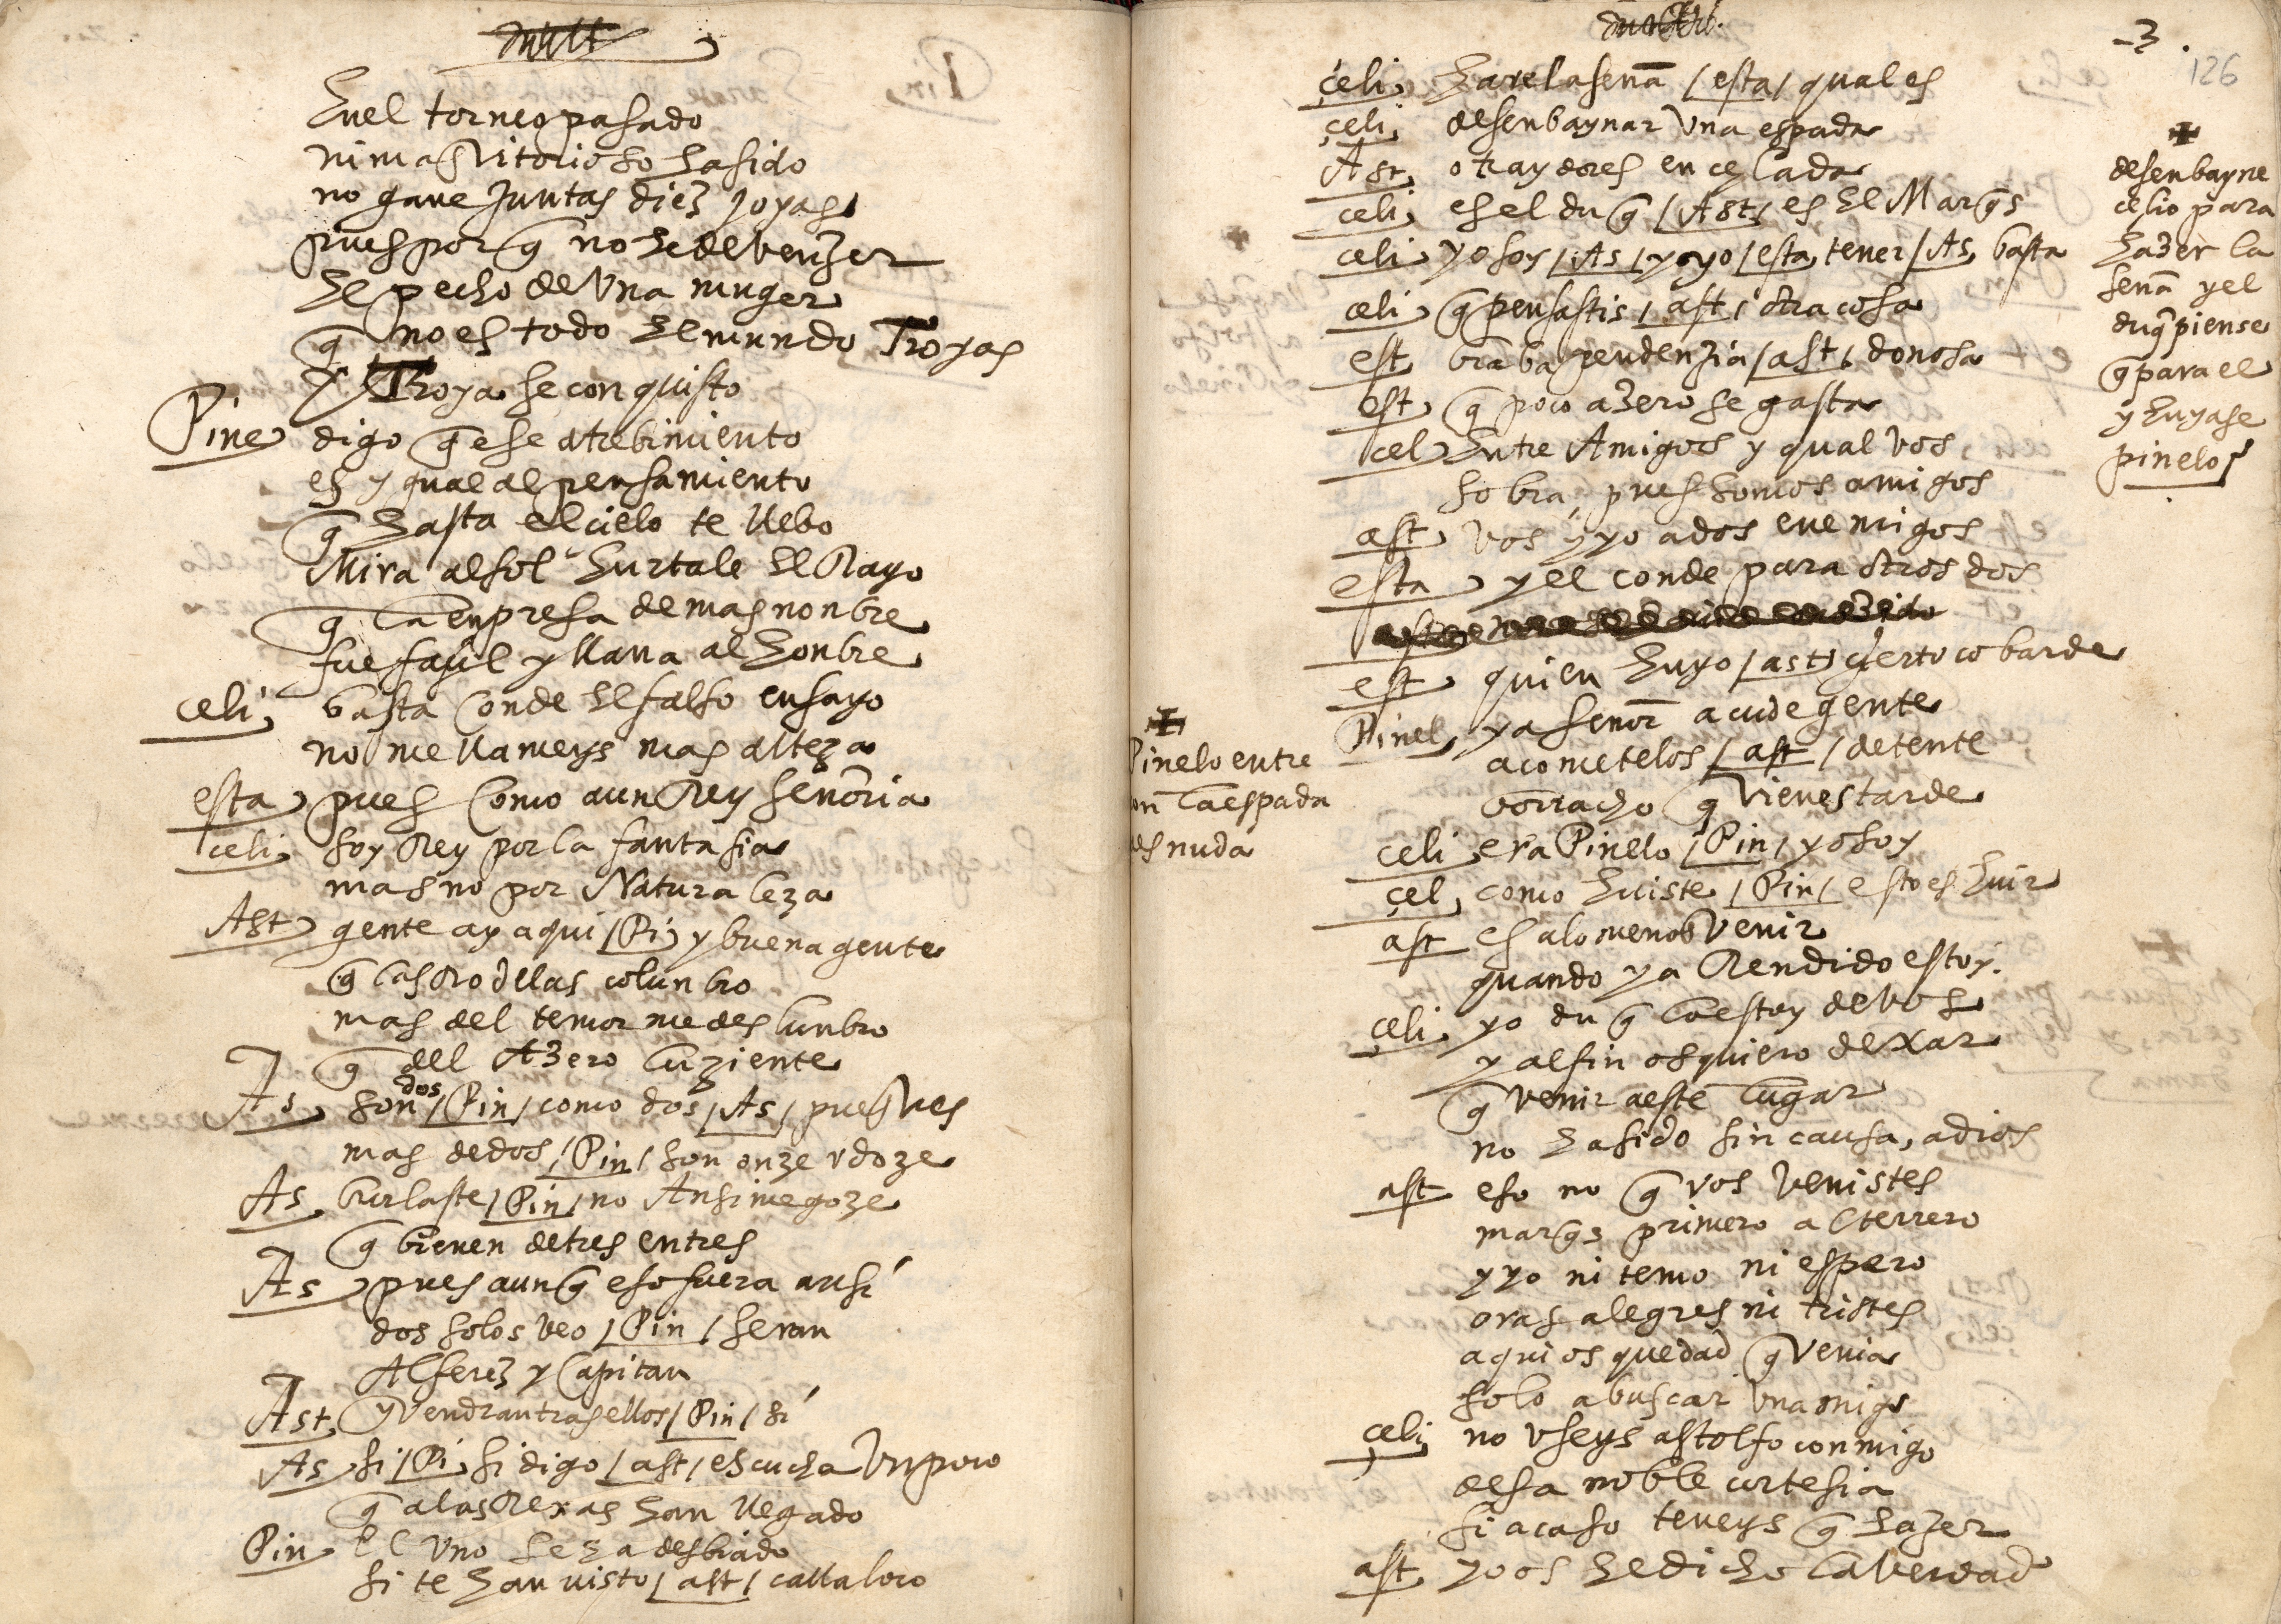 En el torneo pasado
ni mas Vitorioso ha sido
no gane juntas diez joyas
pues por q̃ no he de venzer
El pecho de Vna muger
q̃ no es todo El mundo Troyas
y Troya se conquisto
Pine digo q̃ ese atrebimiento
es ygual al pensamiento
q̃ hasta el cielo te llebo
Mira al sol hurtale El Rayo
q̃ la enpresa de mas nonbre
fue façil y llana al honbre
celi, basta Conde El falso ensayo
no me llameys mas alteza
esta pues Como a un Rey señoria
celi, soy Rey por la fantasia
mas no por Naturaleza
Ast gente ay aqui / Pi, y buena gente
q̃ las Rodelas colunbro
mas del temor me deslunbro
q̃ del Azero luziente
As son dos / Pin / como dos / As / pues q̃ ves
mas de dos / Pin / son onze v doze
As burlaste / Pin / no Ansi me goze
q̃ bienen de tres en tres
As pues aunq̃ eso fuera ansi
dos solos veo / Pin / seran
Alferez y Capitan
Ast, y Vendran tras ellos / Pin / si
As si / Pi, si digo / ast / escucha Vn poco
q̃ a las Rexas han llegado
Pin El Vno se ha desbiado
si te han visto / ast / calla loco
3.
126
celi, Hare la seña / esta / qual es
celi, desenbaynar Vna espada
Ast, o traydores en celada
celi, es el duq̃ / Ast, es El Marq̃s
celi, yo soy / As / y yo / esta, tener / As, basta
celi q̃ pensastis / ast / otra cosa
est braba pendenzia / ast, donosa
est, q̃ poco azero se gasta
cel Entre Amigos y qual vos
sobra, pues somos amigos
ast vos y yo a dos enemigos
esta y el conde para otros dos
est, quien huyo / ast, çierto cobarde
Pinel, ya señor acude gente
acometelos / ast / detente
borracho q̃ Vienes tarde
celi era Pinelo / Pin / yo soy
çel, como huiste / Pin / esto es huir
ast es a lo menos Venir
quando ya Rendido estoy.
çeli, yo duq̃ lo estoy de vos
y al fin os quiero dexar
q̃ venir a este lugar
no ha sido sin causa, adios
ast eso no q̃ vos venistes
marq̃s primero al terrero
y yo ni temo ni espero
oras alegres ni tristes
aqui os quedad q̃ venia
solo a buscar vn amigo
çeli, no vseys astolfo conmigo
desa noble cortesia
si acaso teneys q̃ hazer
ast, yo os he dicho la verdad
desenbayne
celio para
hazer la
seña y el
duq̃ piense
q̃ para el
y huyase
pinelo
Pinelo entre
on la espada
esnuda